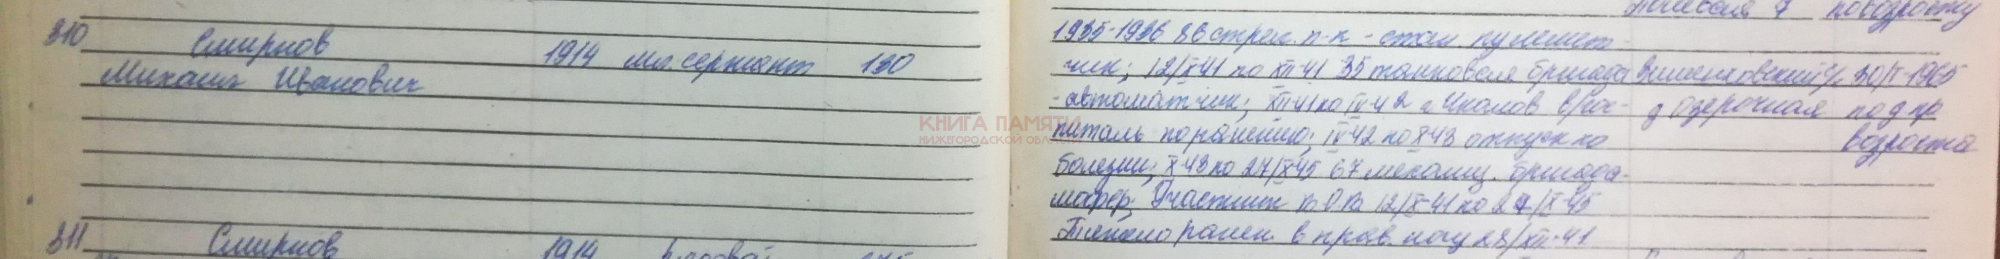 310
Смирнов 1914 мл сержант 130
Михаил Иванович
311 Смирнов 1914 рядовой
7 по возрасту
1935-1936 86 стрел. п-к - стан пулемет-
чик; 12/X-41 по XII-41 35 танковая бригада
- автоматчик; XII-41 по IV-42 г Чкалов в гос-
питаль по ранению; IV-42 по X-43 отпуск по
болезни; X-43 по 27/IX-45 67 механиз. бригада-
шофер; Участник В О В 12/X-41 по 27/IX-45
Тяжело ранен в прав. ногу 28/XII-41
30/I-1965
д Озерочная под пр
возраста
КНИГА ПАМЯТИ
НИЖЕГОРОДСКОЙ ОБЛАСТИ